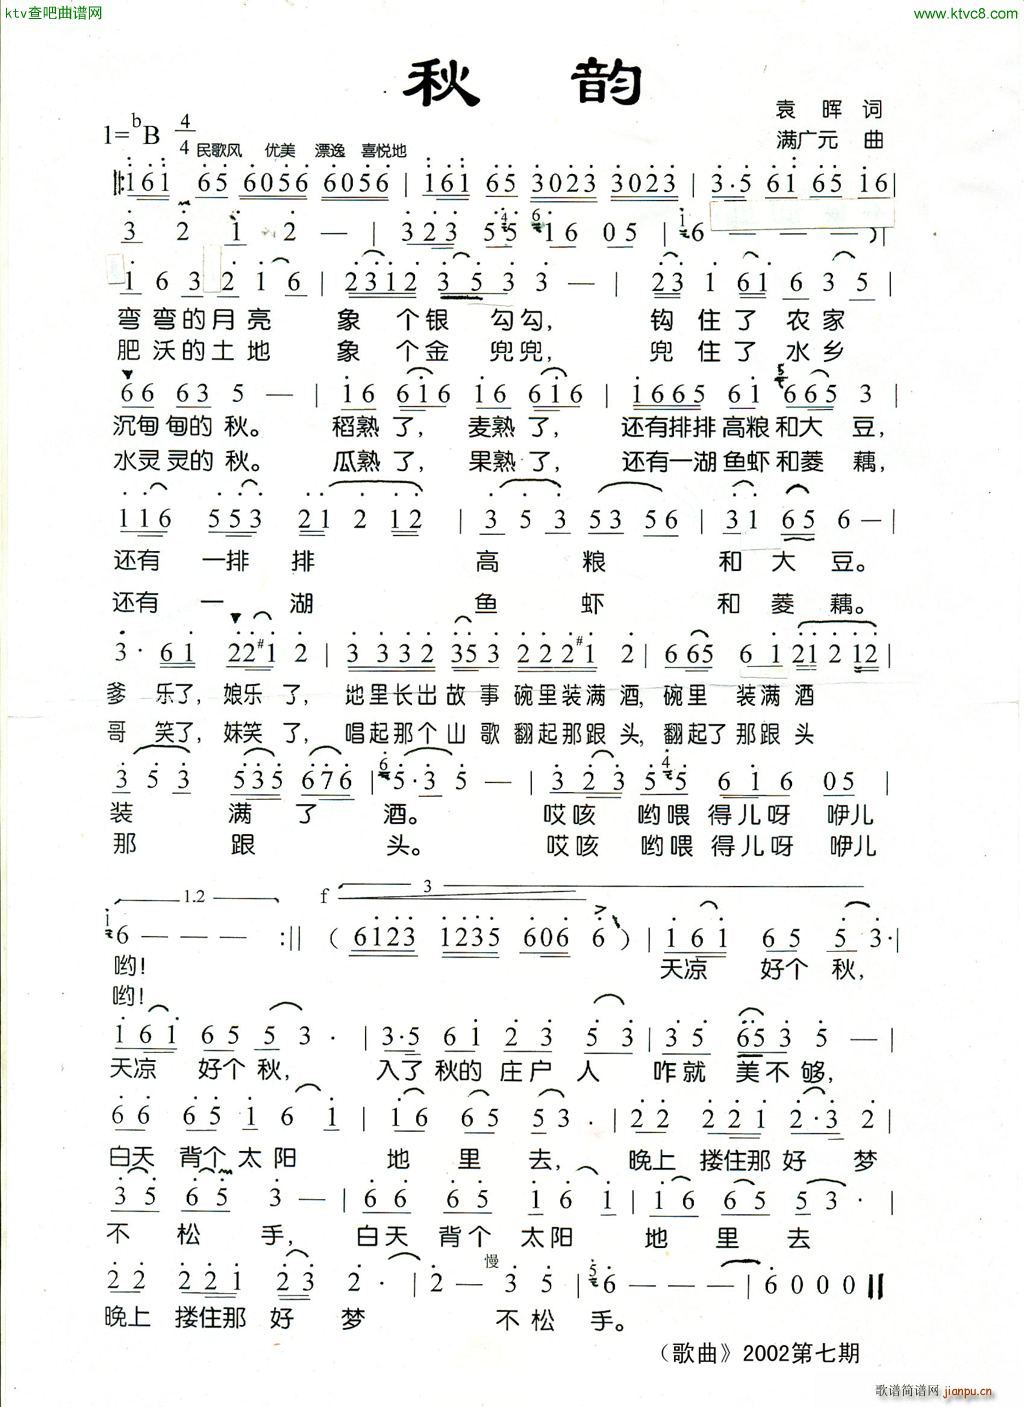 ktv查吧曲谱网
www.ktvc8.com
秋 韵
袁 晖 词
1=bB 4/4
满广元 曲
民歌风 优美 漂逸 喜悦地
161 65 6056 6056 | 161 65 3023 3023 | 3·5 61 65 16 |
3 2 1 2 — | 323 55 16 05 | 6 — — — |
1 6 3 2 1 6 | 2312 3 5 3 3 — | 23 1 61 6 3 5 |
弯弯的月亮 象 个银 勾勾, 钩 住 了 农家
肥沃的土地 象 个金 兜兜, 兜 住 了 水乡
66 63 5 — | 16 616 16 616 | 1665 61 665 3 |
沉甸甸的 秋。 稻熟 了, 麦熟 了, 还有排排高粮和大 豆,
水灵灵的 秋。 瓜熟 了, 果熟 了, 还有一湖鱼虾和菱 藕,
116 553 21 2 12 | 3 5 3 53 56 | 31 65 6 — |
还有 一排 排 高 粮 和 大 豆。
还有 一 湖 鱼 虾 和 菱 藕。
3· 61 22#1 2 | 3 332 353 222#1 2 | 665 6 1 21 2 12 |
爹 乐了, 娘乐 了, 地里长出 故 事 碗里装满 酒, 碗里 装满 酒
哥 笑了, 妹笑 了, 唱起那个山 歌 翻起那跟 头, 翻起了那跟 头
3 5 3 535 676 | 5·3 5 — | 3 2 3 5 5 6 1 6 05 |
装 满 了 酒。 哎咳 哟喂 得儿呀 咿儿
那 跟 头。 哎咳 哟喂 得儿呀 咿儿
1.2 f 3
6 — — — :|| ( 6123 1235 606 6 ) | 1 6 1 65 5 3· |
哟! 天凉 好个 秋,
哟!
1 6 1 65 5 3 · | 3·5 61 2 3 5 3 | 35 653 5 — |
天凉 好个 秋, 入了 秋的 庄户 人 咋就 美不 够,
66 65 1 6 1 | 16 65 53 · | 22 221 2·3 2 |
白天 背个 太阳 地 里 去, 晚上 搂住那 好 梦
35 65 3 — | 66 66 16 1 | 16 65 53 |
不 松 手, 白天 背个 太阳 地 里 去
慢
22 221 23 2 · | 2 — 3 5 | 6 — — — | 6 0 0 0 ||
晚上 搂住那 好 梦 不松 手。
《歌曲》2002第七期
歌谱简谱网 jianpu.cn